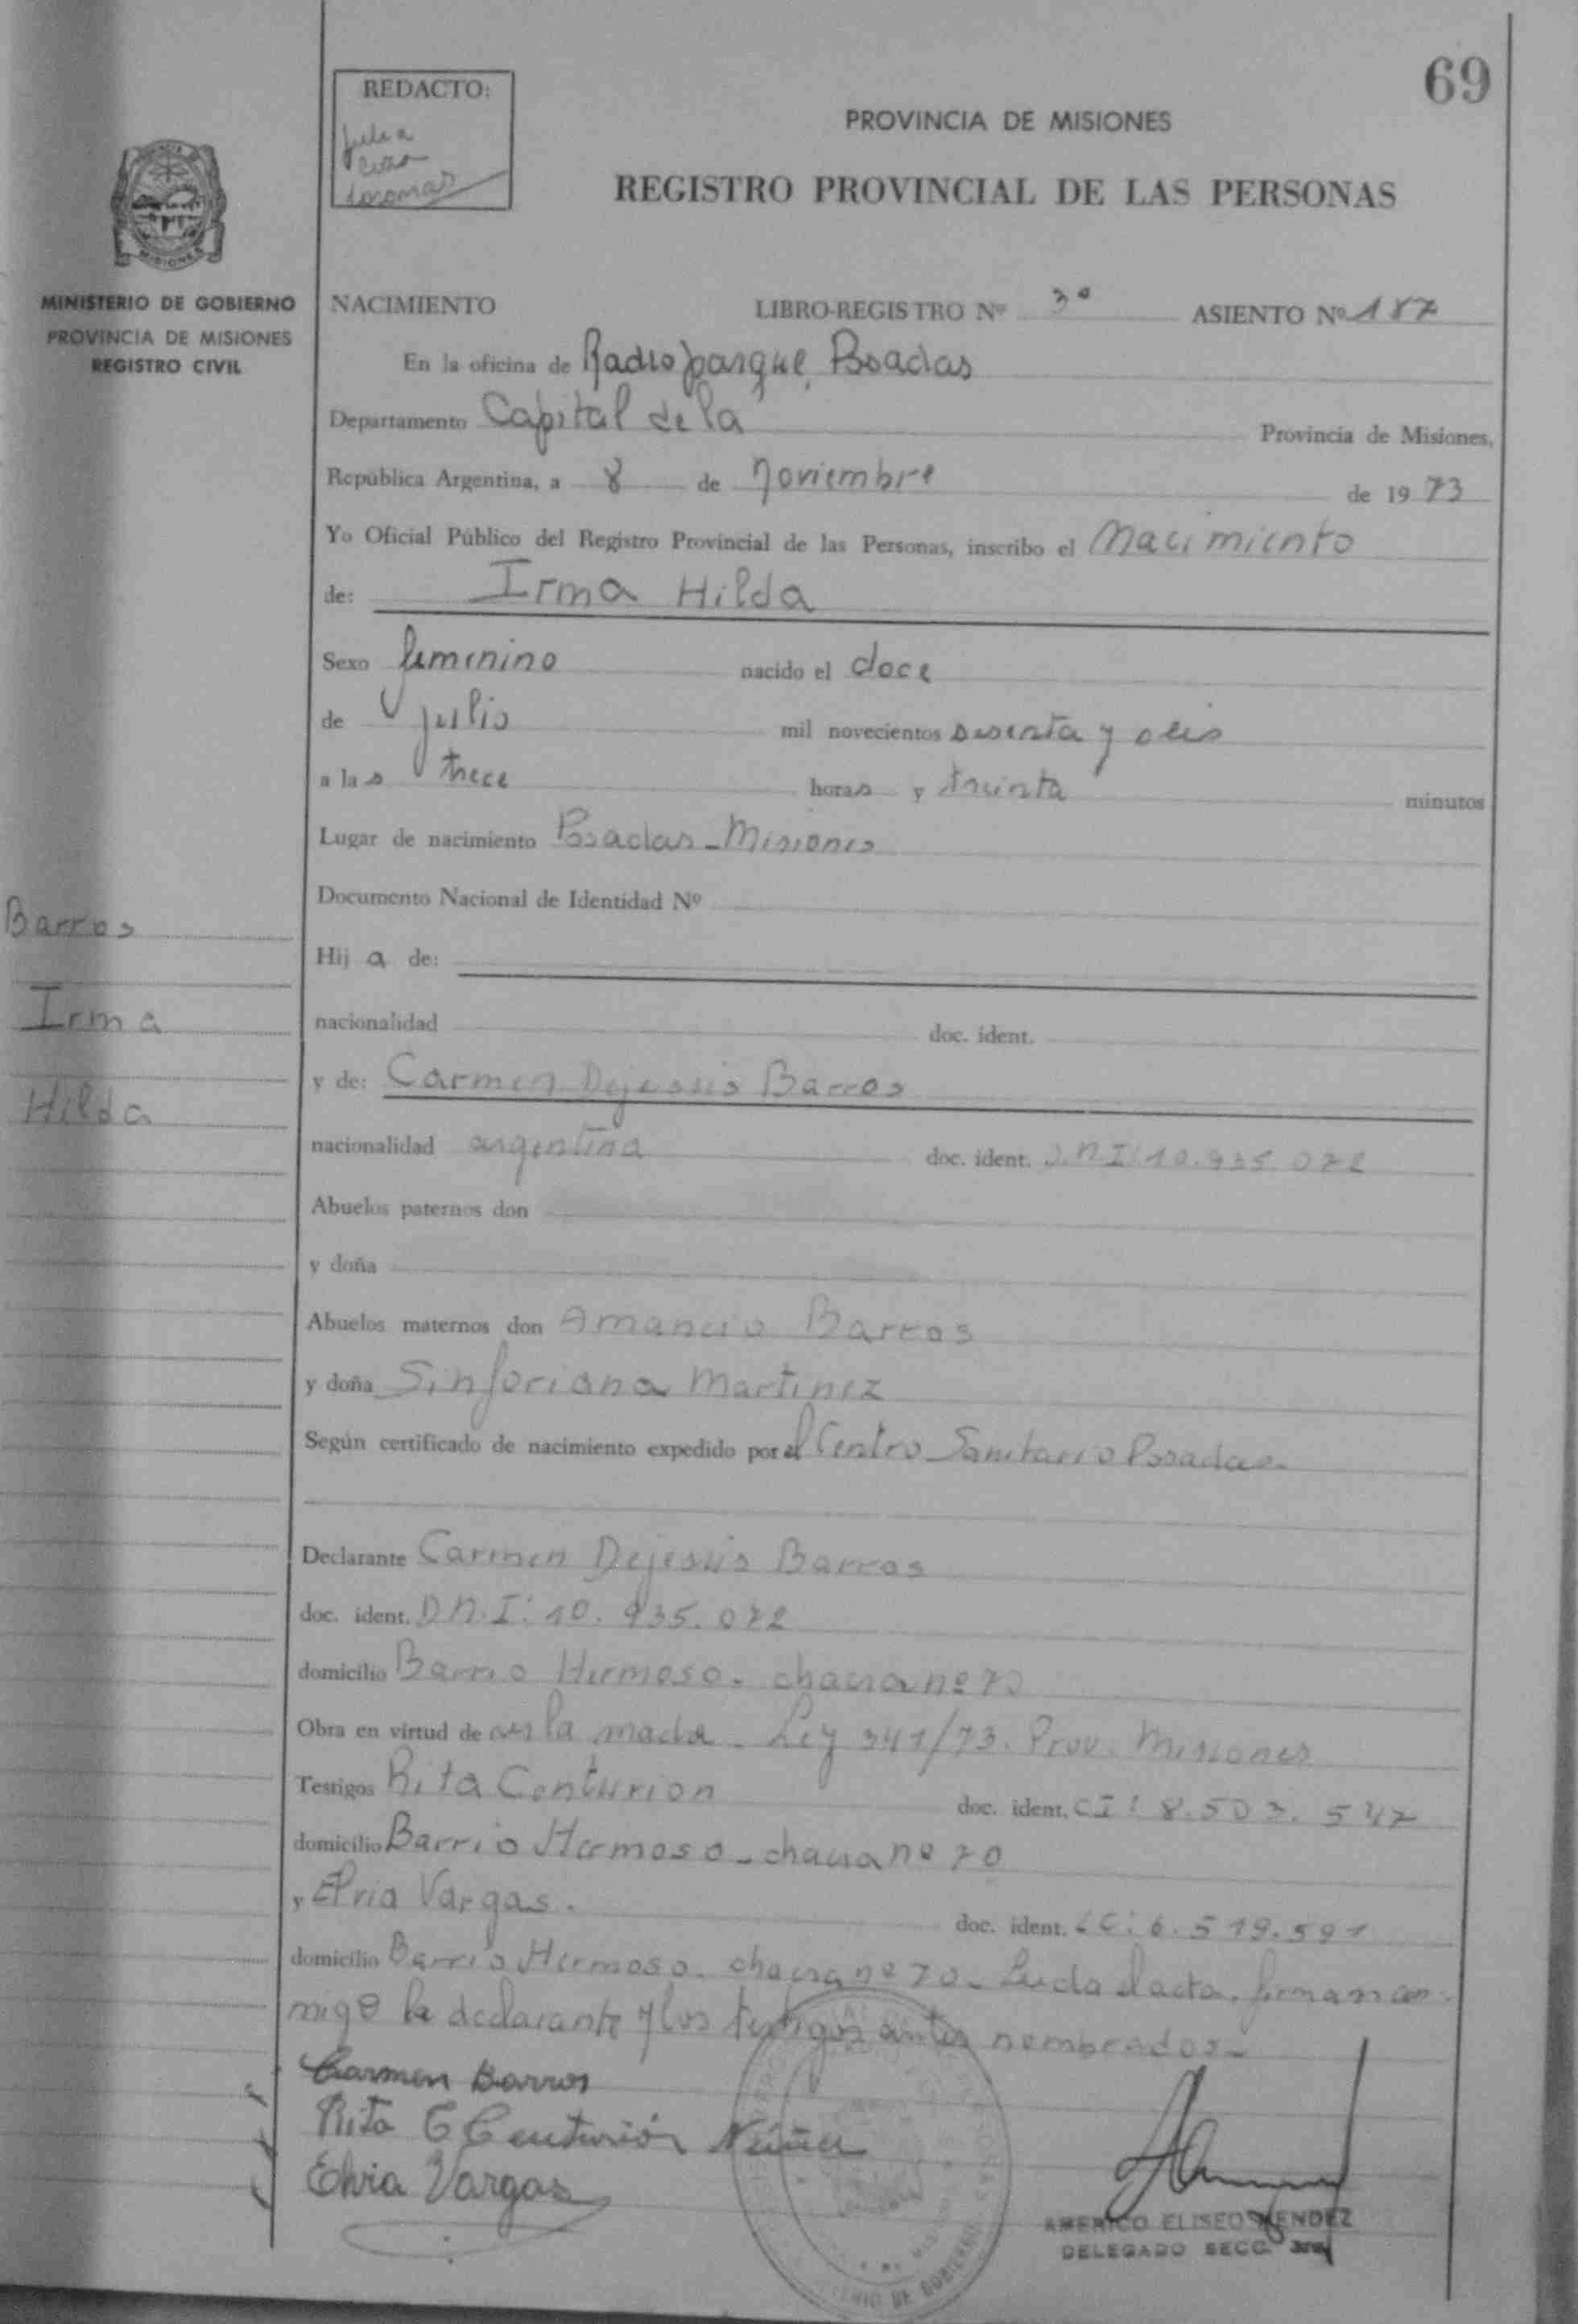 69
REDACTO:
PROVINCIA DE MISIONES
REGISTRO PROVINCIAL DE LAS PERSONAS
MISIONES
MINISTERIO DE GOBIERNO
PROVINCIA DE MISIONES
REGISTRO CIVIL
NACIMIENTO LIBRO-REGISTRO Nº 3ª ASIENTO Nº 187
En la oficina de Radioparque, Posadas
Departamento Capital de la Provincia de Misiones,
República Argentina, a 8 de Noviembre de 1973
Yo Oficial Público del Registro Provincial de las Personas, inscribo el Nacimiento
de: Irma Hilda
Sexo femenino nacido el doce
de julio mil novecientos sesenta y seis
a las trece horas y treinta minutos
Lugar de nacimiento Posadas - Misiones
Documento Nacional de Identidad Nº
Barros
Hija de:
Irma
nacionalidad doc. ident.
y de: Carmen Dejesús Barros
Hilda
nacionalidad argentina doc. ident. D.N.I: 10.935.072
Abuelos paternos don
y doña
Abuelos maternos don Amancio Barros
y doña Sinforiana Martinez
Según certificado de nacimiento expedido por el Centro Sanitario Posadas.
Declarante Carmen Dejesús Barros
doc. ident. D.N.I: 10.935.072
domicilio Barrio Hermoso - chacra nº 70
Obra en virtud de ser la madre - Ley 341/73. Prov. Misiones
Testigos Rita Centurion doc. ident. CI: 8.503.547
domicilio Barrio Hermoso - chacra nº 70
y Elvia Vargas. doc. ident. LC: 6.519.591
domicilio Barrio Hermoso - chacra nº 70 - Leida el acta, firman con-
migo la declarante y los testigos antes nombrados -
Carmen Barros
Rita C Centurión Núñez
Elvia Vargas
AMERICO ELISEO MENDEZ
DELEGADO SECC. 3ra